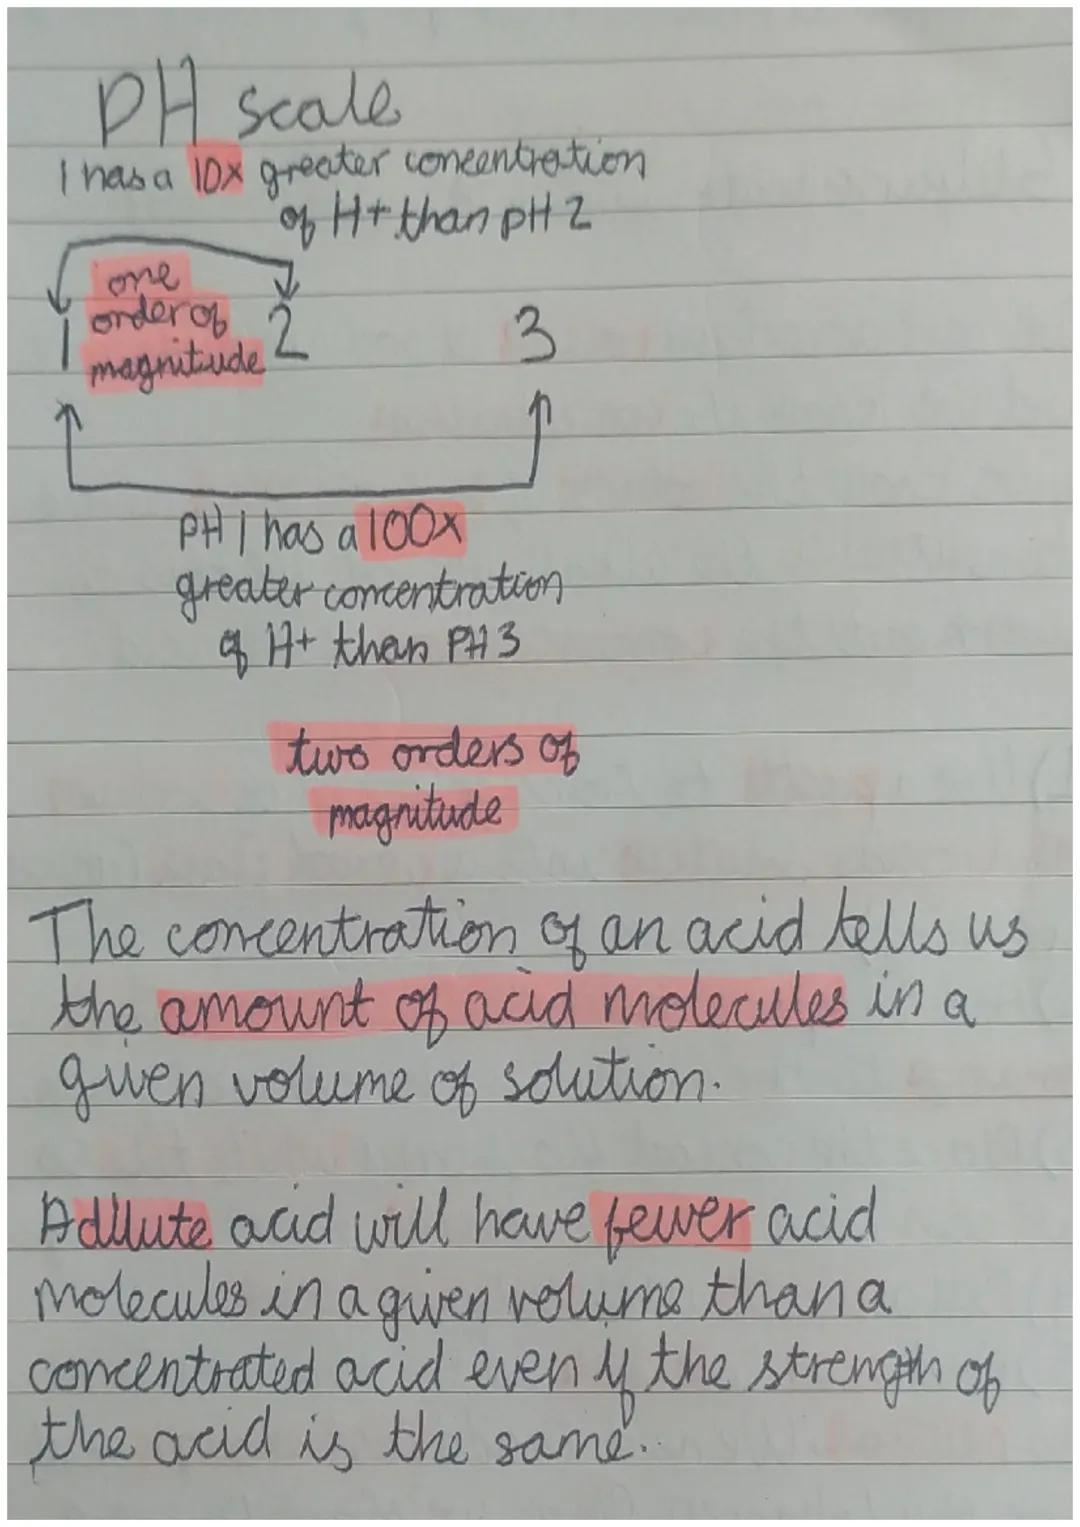 pH scale
1 has a 10x greater concentration
of H+ than pH 2
one
order of
magnitude
1 2 3
PH 1 has a 100x
greater concentration
of H+ than PH 3
two orders of
magnitude
The concentration of an acid tells us
the amount of acid molecules in a
given volume of solution.
A dilute acid will have fewer acid
molecules in a given volume than a
concentrated acid even if the strength of
the acid is the same.